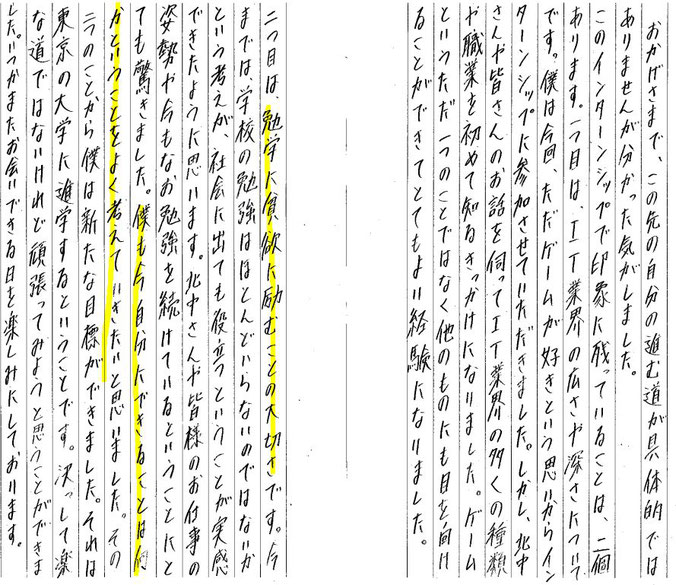 おかげさまで、この先の自分の進む道が具体的では
ありませんが分かった気がしました。
このインターンシップで印象に残っていることは、二個
あります。一つ目は、IT業界の広さや深さについて
です。僕は今回、ただゲームが好きという思いからイン
ターンシップに参加させていただきました。しかし、北中
さんや皆さんのお話を伺ってIT業界の多くの種類
や職業を初めて知るきっかけになりました。ゲーム
というただ一つのことではなく他のものにも目を向け
ることができてとてもよい経験になりました。
二つ目は、勉学に貪欲に励むことの大切さです。今
までは、学校の勉強はほとんどいらないのではないか
という考えが、社会に出ても役立つということが実感
できたように思います。北中さんや皆様のお仕事の
姿勢や今もなお勉強を続けているということにと
ても驚きました。僕も今自分にできることは何
かということをよく考えていきたいと思いました。その
二つのことから僕は新たな目標ができました。それは
東京の大学に進学するということです。決っして楽
な道ではないけれど頑張ってみようと思うことができま
した。いつかまたお会いできる日を楽しみにしております。